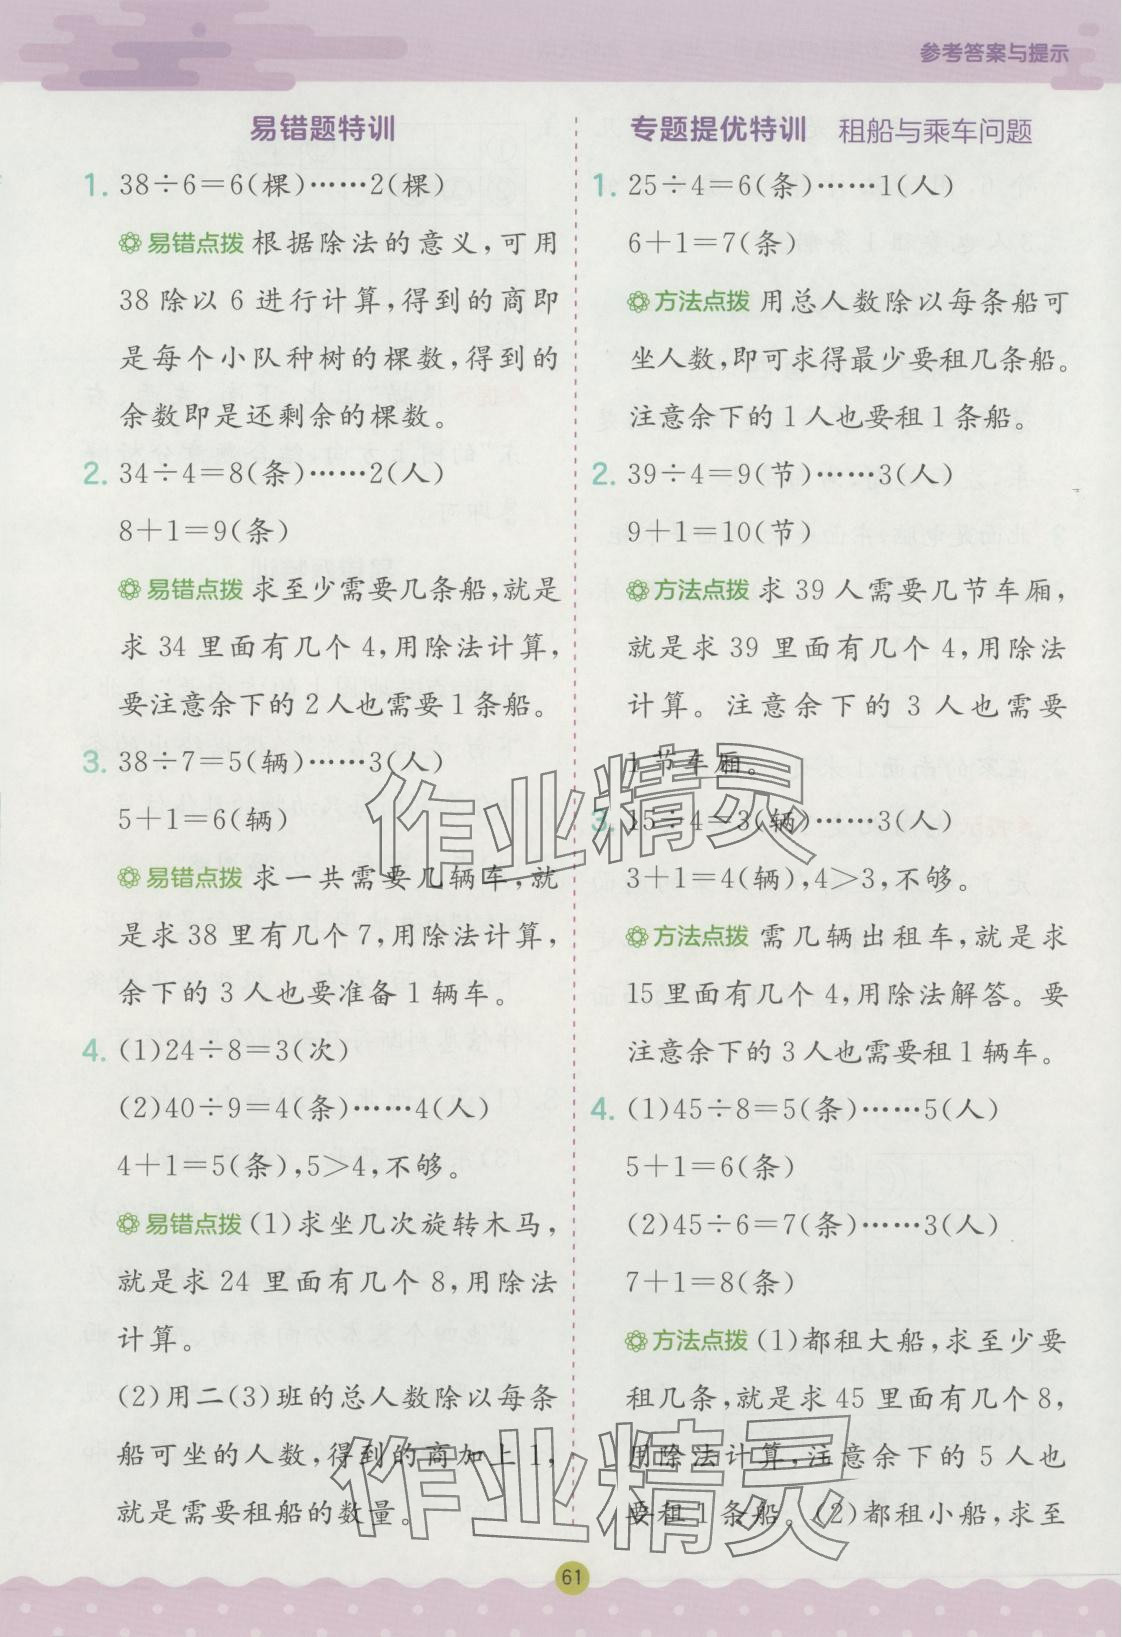 参考答案与提示
易错题特训
1. 38÷6=6(棵)……2(棵)
易错点拨 根据除法的意义,可用
38 除以 6 进行计算,得到的商即
是每个小队种树的棵数,得到的
余数即是还剩余的棵数。
2. 34÷4=8(条)……2(人)
8+1=9(条)
易错点拨 求至少需要几条船,就是
求 34 里面有几个 4,用除法计算,
要注意余下的 2 人也需要 1 条船。
3. 38÷7=5(辆)……3(人)
5+1=6(辆)
易错点拨 求一共需要几辆车,就
是求 38 里有几个 7,用除法计算,
余下的 3 人也要准备 1 辆车。
4. (1)24÷8=3(次)
(2)40÷9=4(条)……4(人)
4+1=5(条),5>4,不够。
易错点拨 (1)求坐几次旋转木马,
就是求 24 里面有几个 8,用除法
计算。
(2)用二(3)班的总人数除以每条
船可坐的人数,得到的商加上 1,
就是需要租船的数量。
专题提优特训 租船与乘车问题
1. 25÷4=6(条)……1(人)
6+1=7(条)
方法点拨 用总人数除以每条船可
坐人数,即可求得最少要租几条船。
注意余下的 1 人也要租 1 条船。
2. 39÷4=9(节)……3(人)
9+1=10(节)
方法点拨 求 39 人需要几节车厢,
就是求 39 里面有几个 4,用除法
计算。注意余下的 3 人也需要
1 节车厢。
3. 15÷4=3(辆)……3(人)
3+1=4(辆),4>3,不够。
方法点拨 需几辆出租车,就是求
15 里面有几个 4,用除法解答。要
注意余下的 3 人也需要租 1 辆车。
4. (1)45÷8=5(条)……5(人)
5+1=6(条)
(2)45÷6=7(条)……3(人)
7+1=8(条)
方法点拨 (1)都租大船,求至少要
租几条,就是求 45 里面有几个 8,
用除法计算,注意余下的 5 人也
要租 1 条船。(2)都租小船,求至
作业精灵
作业精灵
61